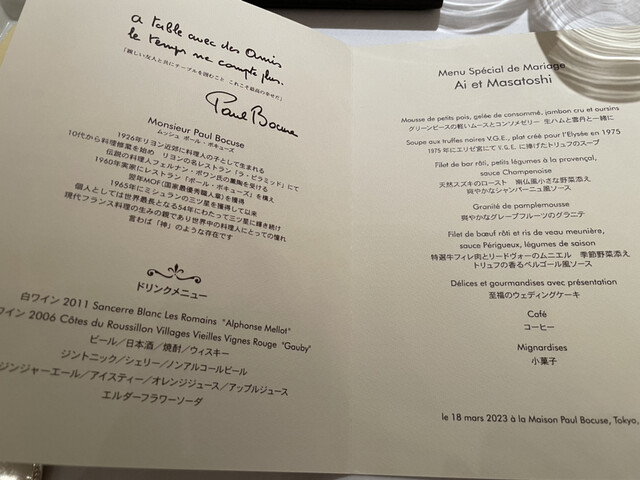 a table avec des amis
le temps ne compte plus.
「親しい友人と共にテーブルを囲むこと これこそ最高の幸せだ」
Paul Bocuse
Monsieur Paul Bocuse
ムッシュ ポール・ボキューズ
1926年リヨン近郊に料理人の子として生まれる
10代から料理修業を始め リヨンの名レストラン「ラ・ピラミッド」にて
伝説の料理人フェルナン・ポワン氏の薫陶を受ける
1960年実家にレストラン「ポール・ボキューズ」を構え
翌年MOF(国家最優秀職人章)を獲得
1965年にミシュランの三ツ星を獲得して以来
個人としては世界最長となる54年にわたって三ツ星に輝き続け
現代フランス料理の生みの親であり世界中の料理人にとっての憧れ
言わば「神」のような存在です
ドリンクメニュー
白ワイン 2011 Sancerre Blanc Les Romains "Alphonse Mellot"
ワイン 2006 Côtes du Roussillon Villages Vieilles Vignes Rouge "Gauby"
ビール/日本酒/焼酎/ウィスキー
ジントニック/シェリー/ノンアルコールビール
ジンジャーエール/アイスティー/オレンジジュース/アップルジュース
エルダーフラワーソーダ
Menu Spécial de Mariage
Ai et Masatoshi
Mousse de petits pois, gelée de consommé, jambon cru et oursins
グリーンピースの軽いムースとコンソメゼリー 生ハムと雲丹と一緒に
Soupe aux truffes noires V.G.E., plat créé pour l'Elysée en 1975
1975 年にエリゼ宮にて V.G.E. に捧げたトリュフのスープ
Filet de bar rôti, petits légumes à la provençal,
sauce Champenoise
天然スズキのロースト 南仏風小さな野菜添え
爽やかなシャンパーニュ風ソース
Granité de pamplemousse
爽やかなグレープフルーツのグラニテ
Filet de bœuf rôti et ris de veau meunière,
sauce Périgueux, légumes de saison
特選牛フィレ肉とリードヴォーのムニエル 季節野菜添え
トリュフの香るペルゴール風ソース
Délices et gourmandises avec présentation
至福のウェディングケーキ
Café
コーヒー
Mignardises
小菓子
le 18 mars 2023 à la Maison Paul Bocuse, Tokyo,